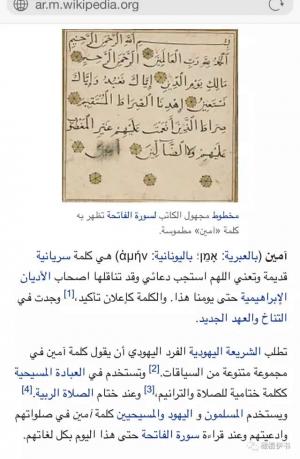 ar.m.wikipedia.org
بسم الله الرحمن الرحيم
الحمد لله رب العالمين الرحمن الرحيم
مالك يوم الدين إياك نعبد وإياك
نستعين اهدنا الصراط المستقيم
صراط الذين أنعمت عليهم غير المغضوب
عليهم ولا الضالين
مخطوط مجهول الكاتب لسورة الفاتحة تظهر به
كلمة «آمين» مطموسة.
آمين (بالعبرية: אָמֵן؛ باليونانية: ἀμήν) هي كلمة سريانية
قديمة وتعني اللهم استجب دعائي وقد تناقلها اصحاب الأديان
الإبراهيمية حتى يومنا هذا. والكلمة كإعلان تأكيد،[1] وجدت في
التناخ والعهد الجديد.
تطلب الشريعة اليهودية الفرد اليهودي أن يقول كلمة آمين في
مجموعة متنوعة من السياقات.[2] وتستخدم في العبادة المسيحية
ككلمة ختامية للصلاة والترانيم،[3] وعند ختام الصلاة الربية.[4]
ويستخدم المسلمون و اليهود والمسيحيين كلمة آمين في صلواتهم
وادعيتهم وعند قراءة سورة الفاتحة حتى هذا اليوم بكل لغاتهم.